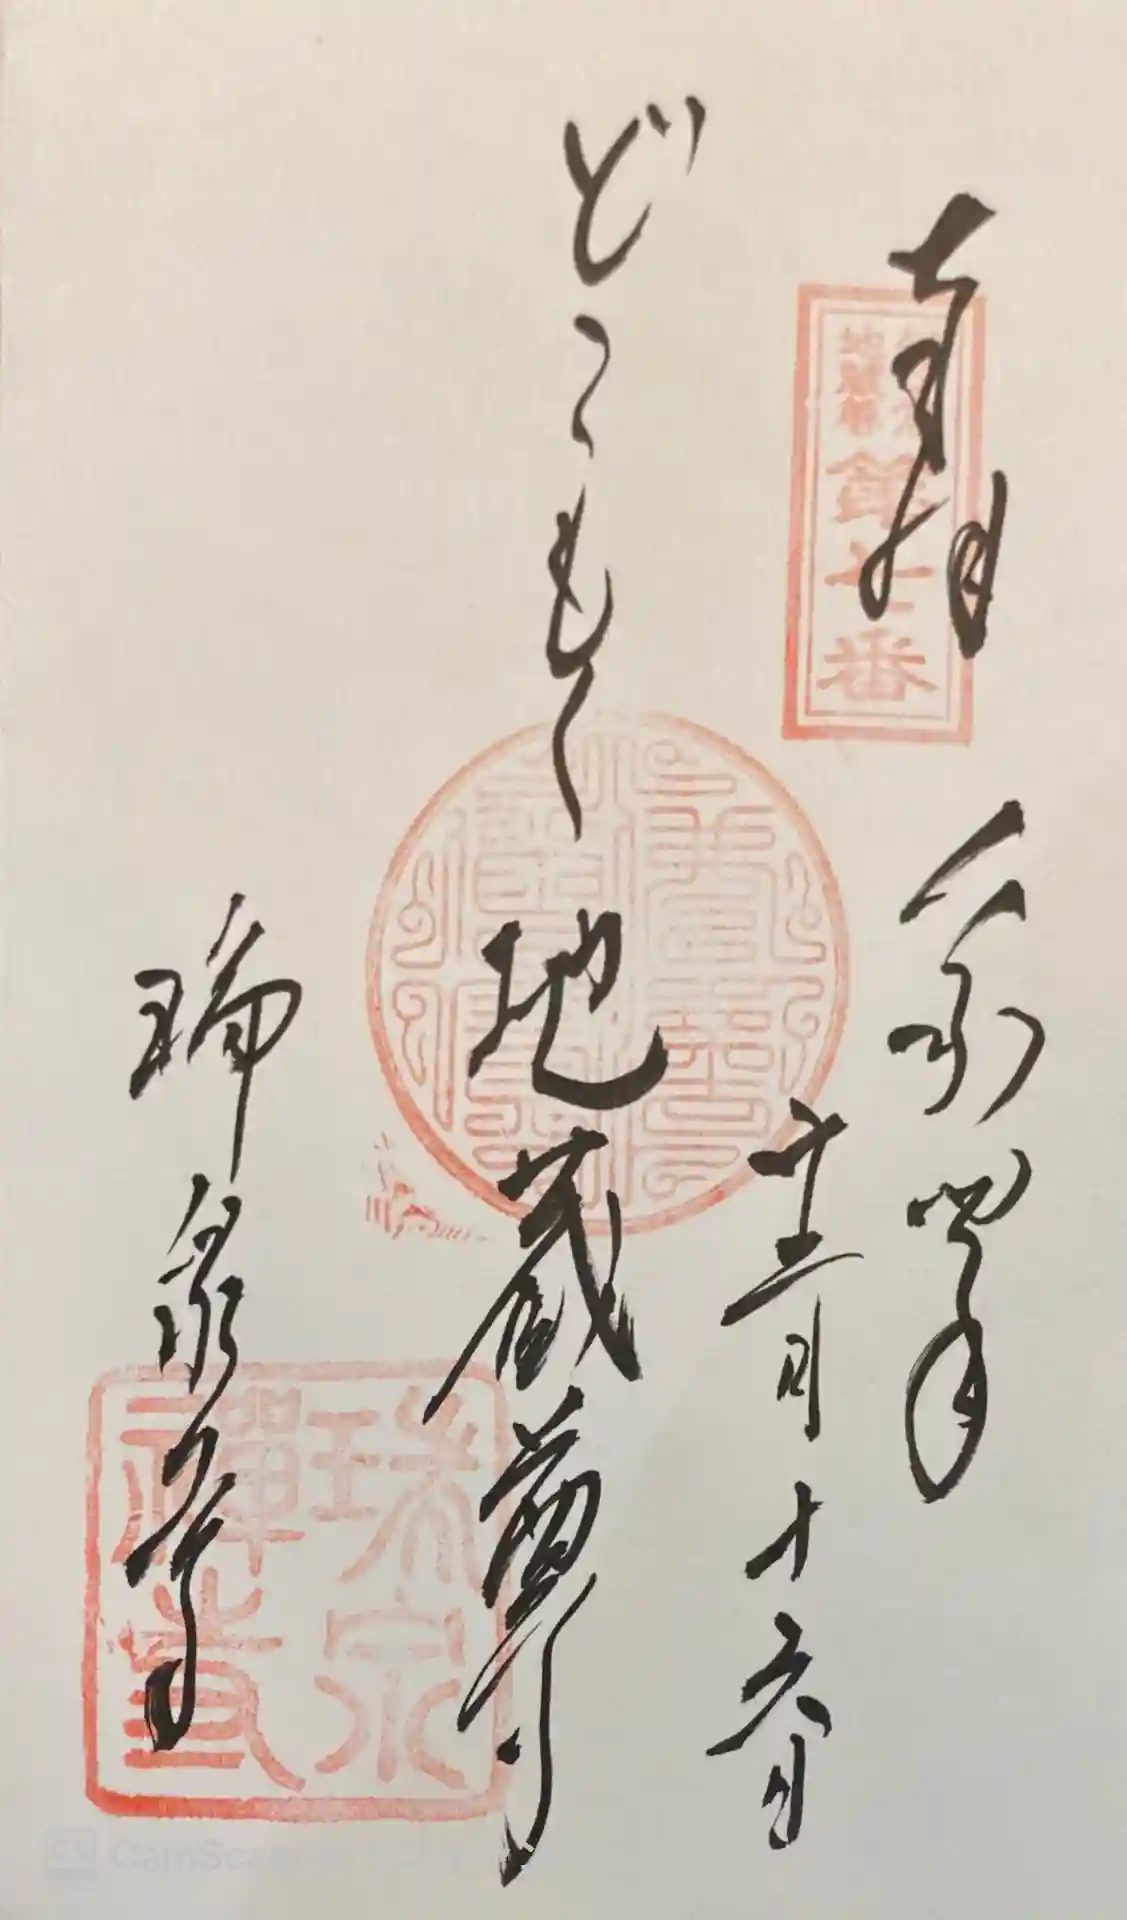 奉拝
令和四年
十二月十六日
どこもく地蔵尊
瑞泉寺
地蔵尊
第七番
瑞泉
禅寺
CamScanner